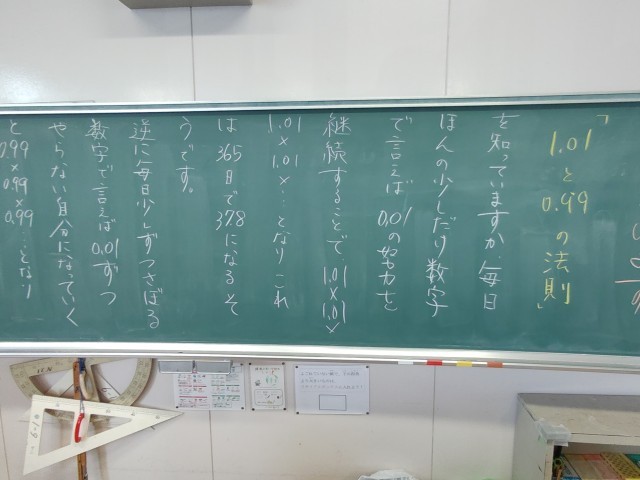 「1.01と0.99の法則」
を知っていますか。毎日
ほんの少しだけ数字
で言えば0.01の努力を
継続することで、1.01×1.01×
1.01×1.01×…となり これ
は365日で37.8になるそ
うです。
逆に毎日少しずつさぼる
数字で言えば0.01ずつ
やらない自分になっていく
と0.99×0.99×0.99…となり